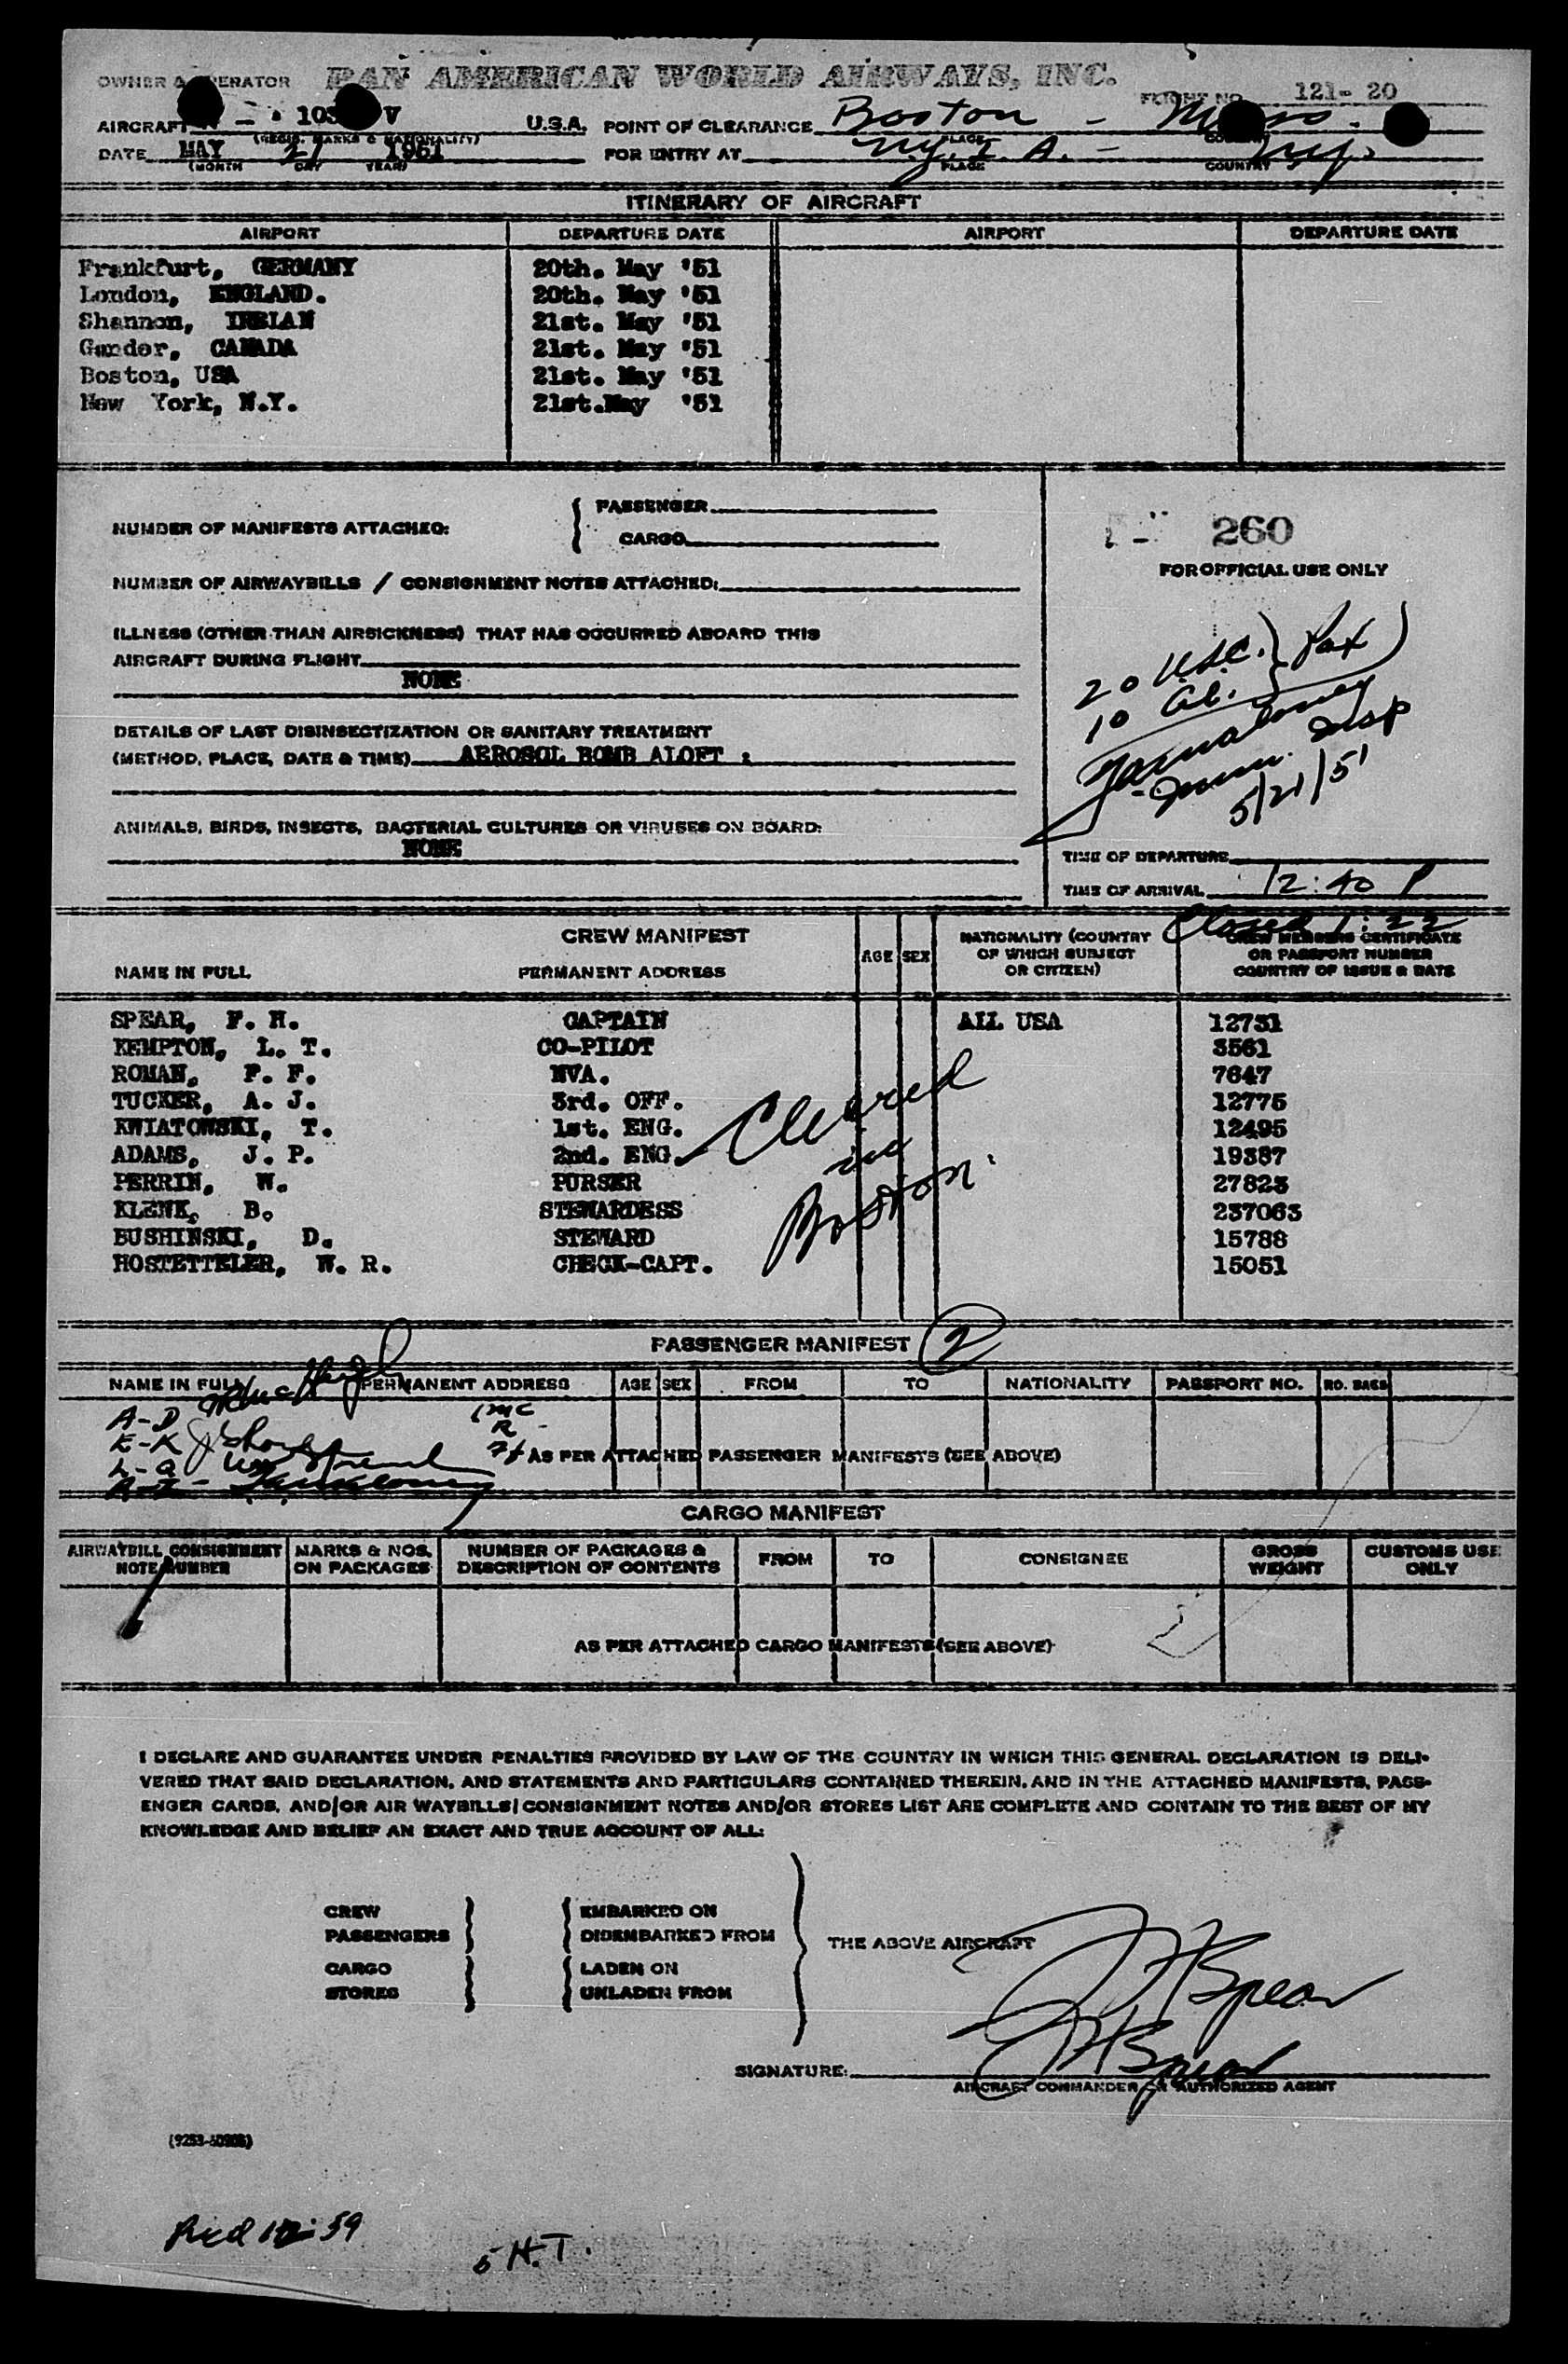 OWNER & OPERATOR PAN AMERICAN WORLD AIRWAYS, INC. FLIGHT NO. 121- 20
AIRCRAFT V U.S.A. POINT OF CLEARANCE Boston - Mass.
(REGIS. MARKS & NATIONALITY) PLACE COUNTRY
DATE MAY 21 1951 FOR ENTRY AT N.Y.I.A. - N.Y.
(MONTH DAY YEAR) PLACE COUNTRY
ITINERARY OF AIRCRAFT
AIRPORT DEPARTURE DATE AIRPORT DEPARTURE DATE
Frankfurt, GERMANY 20th. May '51
London, ENGLAND. 20th. May '51
Shannon, IRELAN 21st. May '51
Gander, CANADA 21st. May '51
Boston, USA 21st. May '51
New York, N.Y. 21st.May '51
NUMBER OF MANIFESTS ATTACHED: PASSENGER
CARGO
260
FOR OFFICIAL USE ONLY
NUMBER OF AIRWAYBILLS / CONSIGNMENT NOTES ATTACHED:
ILLNESS (OTHER THAN AIRSICKNESS) THAT HAS OCCURRED ABOARD THIS
AIRCRAFT DURING FLIGHT
NONE
20 U.S.C. } Pax
10 al.
Imm. Insp
5/21/51
DETAILS OF LAST DISINSECTIZATION OR SANITARY TREATMENT
(METHOD, PLACE, DATE & TIME) AEROSOL BOMB ALOFT :
ANIMALS, BIRDS, INSECTS, BACTERIAL CULTURES OR VIRUSES ON BOARD:
NONE
TIME OF DEPARTURE
TIME OF ARRIVAL 12:40 P
Closed 1:22
CREW MANIFEST
NAME IN FULL PERMANENT ADDRESS AGE SEX NATIONALITY (COUNTRY OF WHICH SUBJECT OR CITIZEN) CREW MEMBERS CERTIFICATE OR PASSPORT NUMBER COUNTRY OF ISSUE & DATE
SPEAR, F. H. CAPTAIN ALL USA 12731
KEMPTON, L. T. CO-PILOT 3561
ROMAN, F. F. NVA. 7647
TUCKER, A. J. 3rd. OFF. 12775
KWIATOWSKI, T. 1st. ENG. 12495
ADAMS, J. P. 2nd. ENG. 19387
PERRIN, W. PURSER 27823
KLENK, B. STEWARDESS 237063
BUSHINSKI, D. STEWARD 15788
HOSTETTELER, W. R. CHECK-CAPT. 15051
Cleared
in
Boston
PASSENGER MANIFEST 2
NAME IN FULL PERMANENT ADDRESS AGE SEX FROM TO NATIONALITY PASSPORT NO. NO. BAGS
A-D
E-K
L-Q
AS PER ATTACHED PASSENGER MANIFESTS (SEE ABOVE)
CARGO MANIFEST
AIRWAYBILL CONSIGNMENT NOTE NUMBER MARKS & NOS. ON PACKAGES NUMBER OF PACKAGES & DESCRIPTION OF CONTENTS FROM TO CONSIGNEE GROSS WEIGHT CUSTOMS USE ONLY
AS PER ATTACHED CARGO MANIFESTS (SEE ABOVE)
I DECLARE AND GUARANTEE UNDER PENALTIES PROVIDED BY LAW OF THE COUNTRY IN WHICH THIS GENERAL DECLARATION IS DELI-
VERED THAT SAID DECLARATION, AND STATEMENTS AND PARTICULARS CONTAINED THEREIN, AND IN THE ATTACHED MANIFESTS, PASS-
ENGER CARDS, AND/OR AIR WAYBILLS/CONSIGNMENT NOTES AND/OR STORES LIST ARE COMPLETE AND CONTAIN TO THE BEST OF MY
KNOWLEDGE AND BELIEF AN EXACT AND TRUE ACCOUNT OF ALL:
CREW EMBARKED ON
PASSENGERS DISEMBARKED FROM
THE ABOVE AIRCRAFT
CARGO LADEN ON
STORES UNLADEN FROM
F H Spear
F H Spear
SIGNATURE:
AIRCRAFT COMMANDER OR AUTHORIZED AGENT
Rcd 12:59
5 H.T.